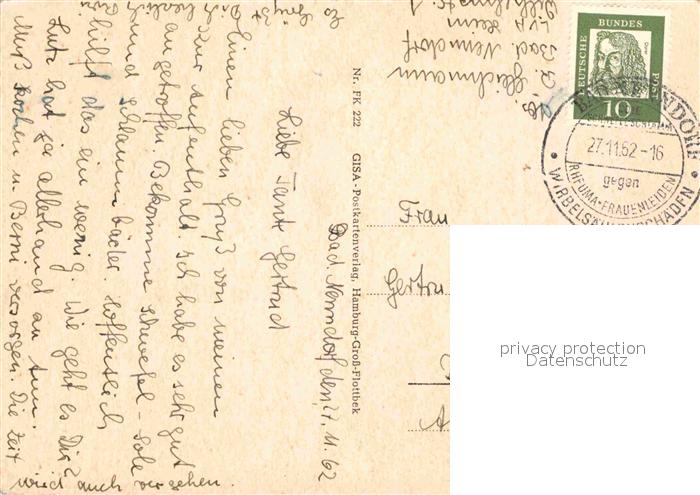 Bad. Nenndorf den, 27. 11. 62
Liebe Tante Gertrud
Einen lieben Gruß von meinem
Kur Aufenthalt. Ich habe es sehr gut
angetroffen. Bekomme Schwefel - Sole
und Schlammbäder. Hoffentlich
hilft das ein wenig. Wie geht es Dir?
Lutz hat ja allerhand an tun.
Muß kochen u. Berni versorgen. Die Zeit
wird auch vergehen.
Es grüßt
Dich herzlich
Nr. FK 222 GISA-Postkartenverlag, Hamburg-Groß-Flottbek
Bad Nenndorf
DEUTSCHE BUNDESPOST
Dürer
10
BAD NENNDORF
27.11.62-16
gegen
RHEUMA-FRAUENLEIDEN
WIRBELSÄULENSCHÄDEN
Frau
Gertru
privacy protection
Datenschutz